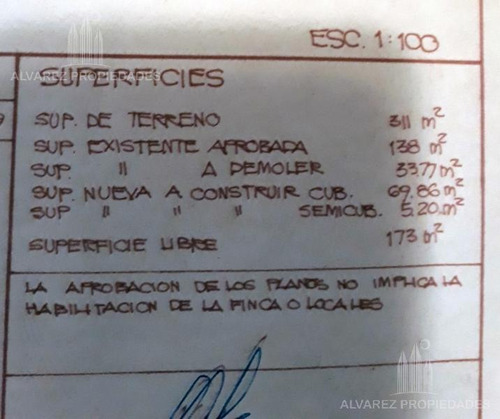 ESC. 1:100
ALVAREZ PROPIEDADES
SUPERFICIES
SUP. DE TERRENO 311 m²
SUP. EXISTENTE APROBADA 138 m²
SUP. " A DEMOLER 33.77 m²
SUP. NUEVA A CONSTRUIR CUB. 69.86 m²
SUP " " " SEMICUB. 5.20 m²
SUPERFICIE LIBRE 173 m²
LA APROBACION DE LOS PLANOS NO IMPLICA LA
HABILITACION DE LA FINCA O LOCALES
ALVAREZ PROPIEDADES